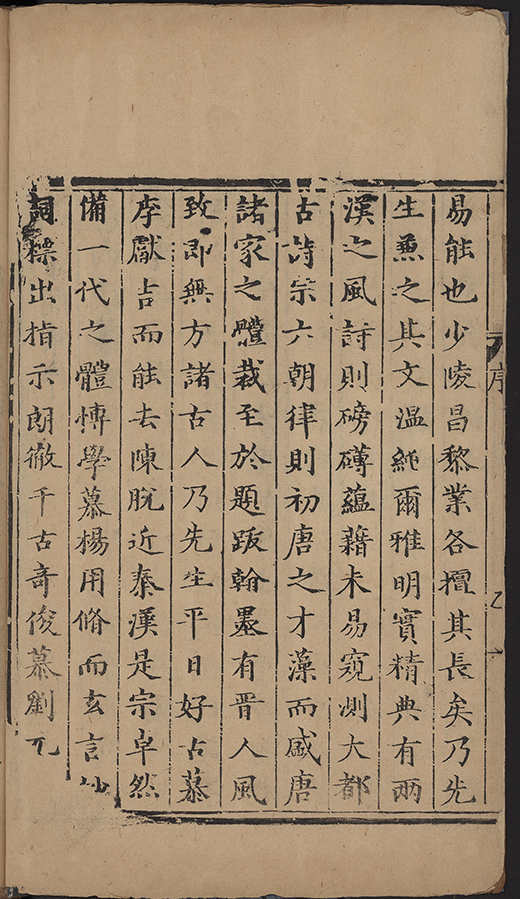 序
易能也少陵昌黎業各擅其長矣乃先
生兼之其文溫純爾雅明實精典有兩
漢之風詩則磅礴蘊藉未易窺測大都
古詩宗六朝律則初唐之才藻而盛唐
諸家之體裁至於題跋翰墨有晉人風
致即無方諸古人乃先生平日好古慕
李獻吉而能去陳脫近秦漢是宗卓然
備一代之體博學慕楊用脩而玄言妙
詞標出指示朗徹千古奇俊慕劉元